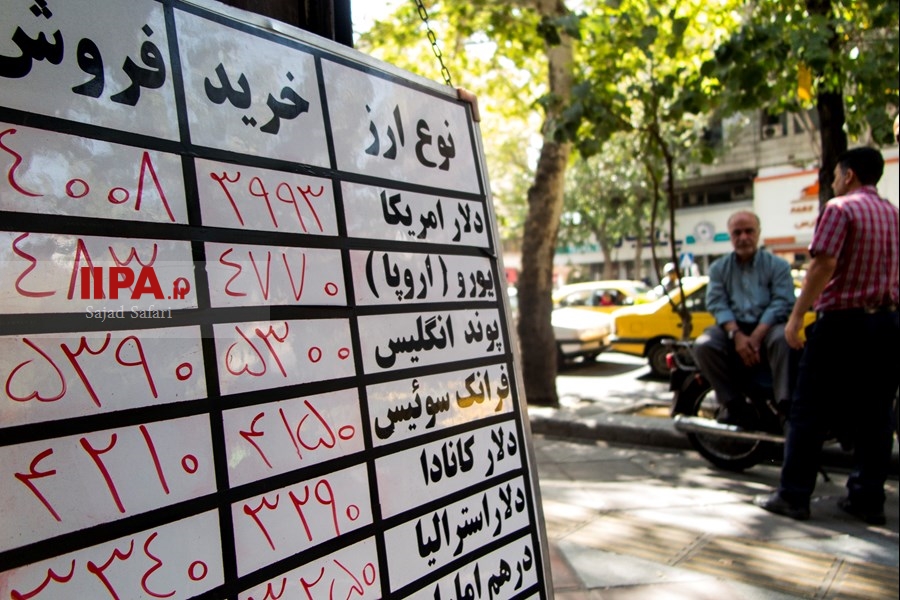 نوع ارز خرید فروش
دلار امریکا ۳۹۹۳ ۴۰۰۸
یورو ( اروپا ) ۴۷۷۰
پوند انگلیس ۵۳۰۰ ۵۳۹۰
فرانک سوئیس ۴۱۵۰ ۴۲۱۰
دلار کانادا ۳۲۹۰ ۳۳۴۰
دلار استرالیا ۳۲۵۰
درهم
IIPA.ir
Sajad Safari